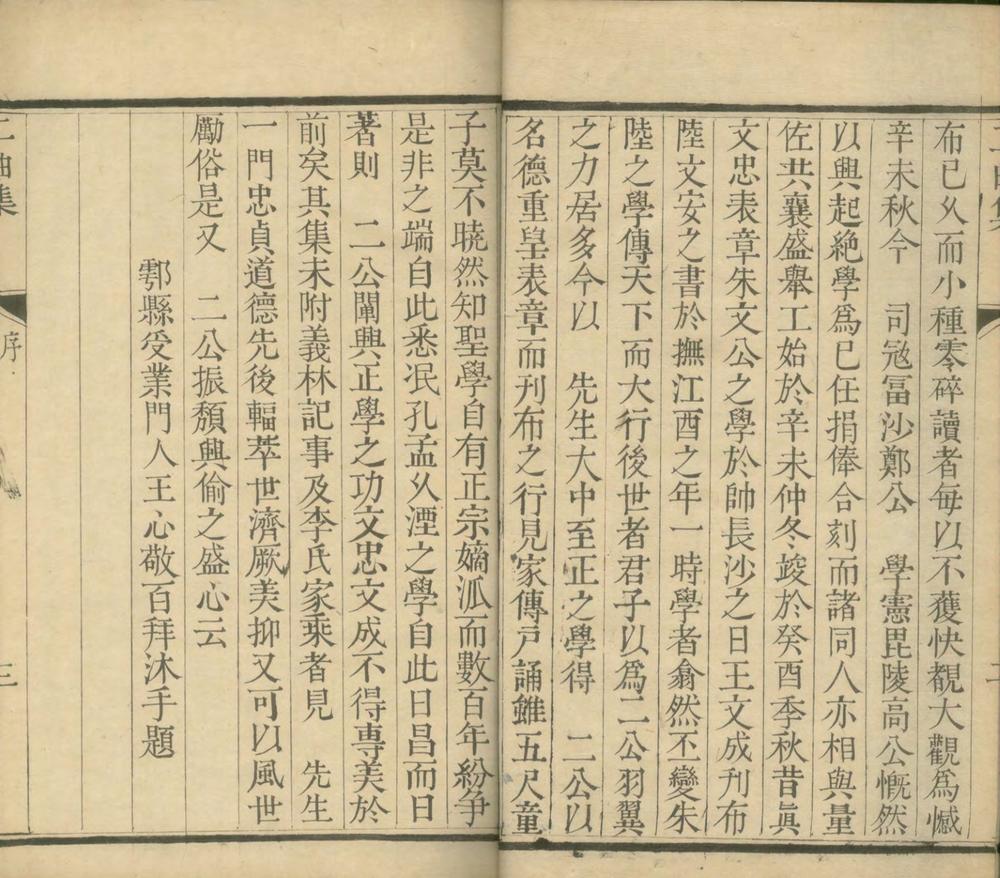 布已久而小種零碎讀者每以不獲快覩大觀為憾
辛未秋今　司寇冨沙鄭公　學憲毘陵高公慨然
以興起絶學爲已任捐俸合刻而諸同人亦相與量
佐共襄盛舉工始於辛未仲冬竣於癸酉季秋昔眞
文忠表章朱文公之學於帥長沙之日王文成刊布
陸文安之書於撫江西之年一時學者翕然丕變朱
陸之學傳天下而大行後世者君子以爲二公羽翼
之力居多今以　先生大中至正之學得　二公以
名德重望表章而刊布之行見家傳戸誦雖五尺童
子莫不曉然知聖學自有正宗嫡派而數百年紛爭
是非之端自此悉泯孔孟久湮之學自此日昌而日
著則　二公闡興正學之功文忠文成不得專美於
前矣其集末附義林記事及李氏家乘者見　先生
一門忠貞道德先後輻萃世濟厥美抑又可以風世
勵俗是又　二公振頽興偷之盛心云
鄠縣受業門人王心敬百拜沐手題
二曲集
序
三